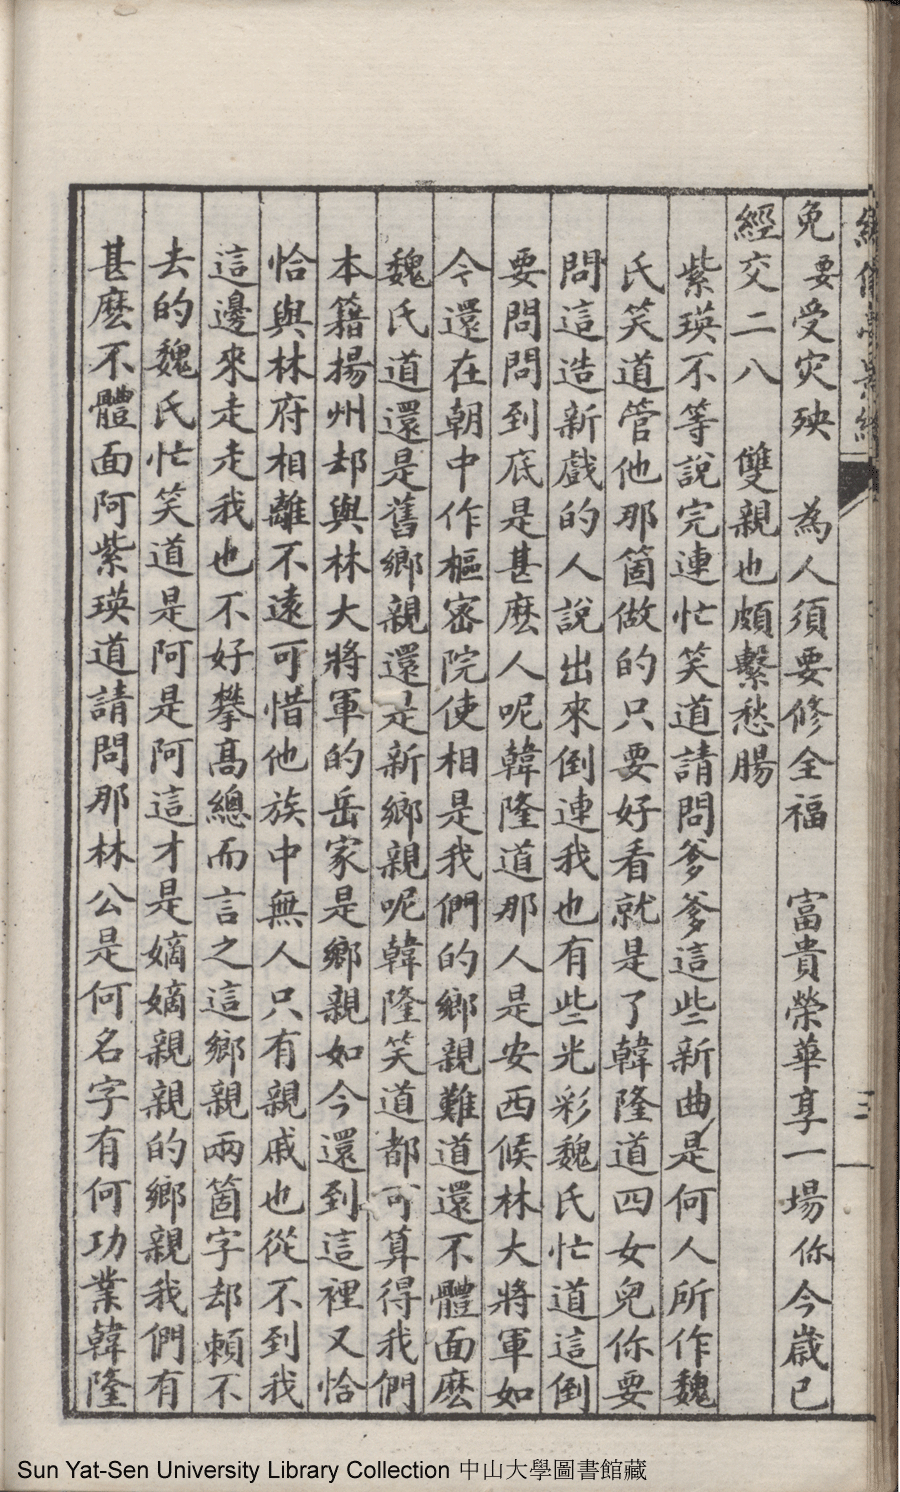 免要受灾殃　為人須要修全福　富貴榮華享一場你今歲已
經交二八　雙親也頗繫愁腸
紫瑛不等說完連忙笑道請問爹爹這些新曲是何人所作魏
氏笑道管他那箇做的只要好看就是了韓隆道四女兒你要
問這造新戲的人說出來倒連我也有些光彩魏氏忙道這倒
要問問到底是甚麽人呢韓隆道那人是安西候林大將軍如
今還在朝中作樞密院使相是我們的鄉親難道還不體面麽
魏氏道還是舊鄉親還是新鄉親呢韓隆笑道都可算得我們
本籍揚州却與林大將軍的岳家是鄉親如今還到這裡又恰
恰與林府相離不遠可惜他族中無人只有親戚也從不到我
這邊來走走我也不好攀高總而言之這鄉親兩箇字却賴不
去的魏氏忙笑道是阿是阿這才是嫡嫡親親的鄉親我們有
甚麽不體面阿紫瑛道請問那林公是何名字有何功業韓隆
Sun Yat-Sen University Library Collection 中山大學圖書館藏